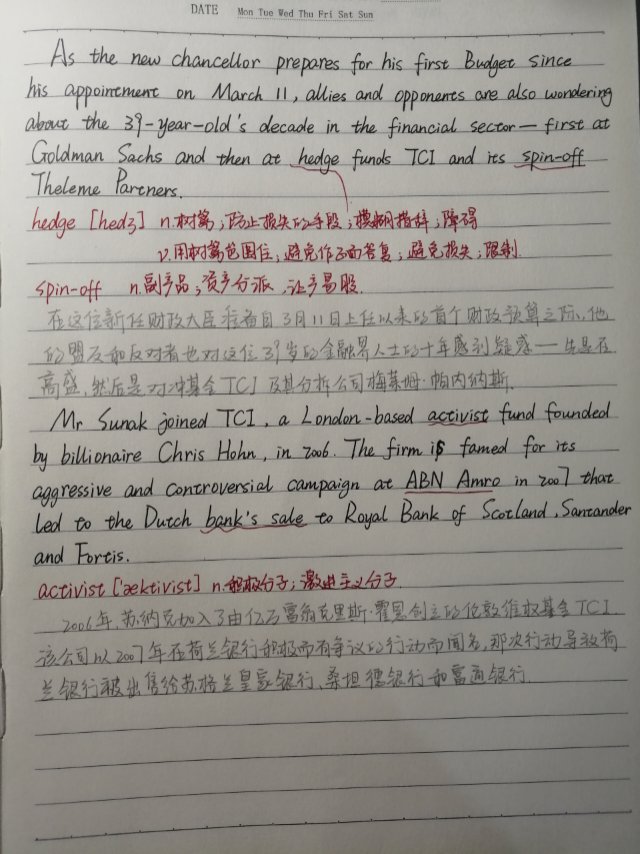 DATE Mon Tue Wed Thu Fri Sat Sun
As the new chancellor prepares for his first Budget since
his appointment on March 11, allies and opponents are also wondering
about the 39-year-old's decade in the financial sector — first at
Goldman Sachs and then at hedge funds TCI and its spin-off
Theleme Partners.
hedge [hedʒ] n.树篱；防止损失的手段；模糊措辞；障碍
v.用树篱包围住，避免作正面答复；避免损失；限制.
spin-off n.副产品；资产分派，让产易股.
在这位新任财政大臣准备自3月11日上任以来的首个财政预算之际，他
的盟友和反对者也对这位39岁的金融界人士的十年感到疑惑——先是在
高盛，然后是对冲基金TCI及其分拆公司梅莱姆·帕内纳斯.
Mr Sunak joined TCI, a London-based activist fund founded
by billionaire Chris Hohn, in 2006. The firm is famed for its
aggressive and controversial campaign at ABN Amro in 2007 that
led to the Dutch bank's sale to Royal Bank of Scotland, Santander
and Fortis.
activist ['æktivist] n.积极分子；激进主义分子.
2006年，苏纳克加入了由亿万富翁克里斯·霍恩创立的伦敦维权基金TCI.
该公司以2007年在荷兰银行积极而有争议的行动而闻名，那次行动导致荷
兰银行被出售给苏格兰皇家银行、桑坦德银行和富通银行.